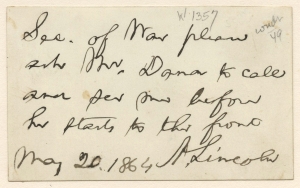 W 1357
Sec. of War please
ask Mr. Dana to call
and see me before
he starts to the front
May 20. 1864 A. Lincoln